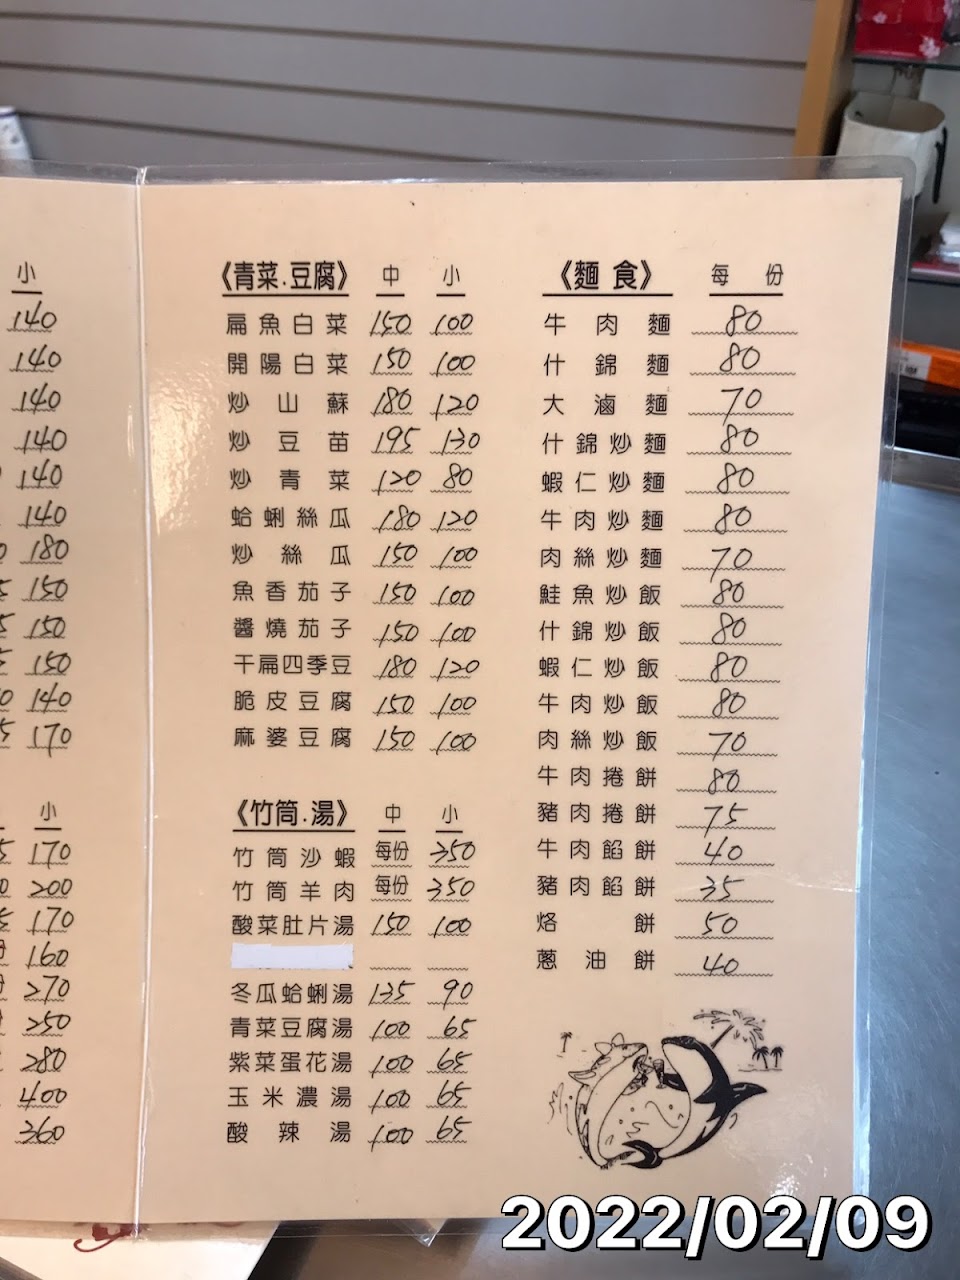 小
140
140
140
140
140
140
180
150
150
150
140
170
小
170
200
170
160
270
250
280
400
360
《青菜.豆腐》 中 小
扁魚白菜 150 100
開陽白菜 150 100
炒山蘇 180 120
炒豆苗 195 130
炒青菜 120 80
蛤蜊絲瓜 180 120
炒絲瓜 150 100
魚香茄子 150 100
醬燒茄子 150 100
干扁四季豆 180 120
脆皮豆腐 150 100
麻婆豆腐 150 100
《竹筒.湯》 中 小
竹筒沙蝦 每份 350
竹筒羊肉 每份 350
酸菜肚片湯 150 100
冬瓜蛤蜊湯 135 90
青菜豆腐湯 100 65
紫菜蛋花湯 100 65
玉米濃湯 100 65
酸辣湯 100 65
《麵食》 每份
牛肉麵 80
什錦麵 80
大滷麵 70
什錦炒麵 80
蝦仁炒麵 80
牛肉炒麵 80
肉絲炒麵 70
鮭魚炒飯 80
什錦炒飯 80
蝦仁炒飯 80
牛肉炒飯 80
肉絲炒飯 70
牛肉捲餅 80
豬肉捲餅 75
牛肉餡餅 40
豬肉餡餅 35
烙餅 50
蔥油餅 40
2022/02/09